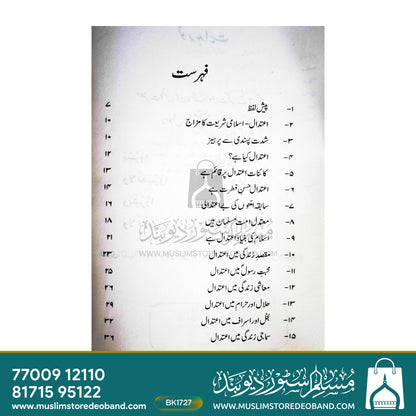 فہرست
۱- پیش لفظ ۷
۲- اعتدال - اسلامی شریعت کا مزاج ۱۰
۳- شدت پسندی سے پرہیز ۱۰
۴- اعتدال کیا ہے؟ ۱۲
۵- کائنات اعتدال پر قائم ہے ۱۳
۶- اعتدال حسن فطرت ہے ۱۴
۷- سابقہ امتوں کی بے اعتدالی ۱۷
۸- معتدل امت مسلمان ہیں ۱۸
۹- اسلام کی بنیاد اعتدال ہے ۲۱
۱۰- مقصدِ زندگی میں اعتدال ۲۳
۱۱- محبتِ رسولؐ میں اعتدال ۲۵
۱۲- معاشی زندگی میں اعتدال ۲۶
۱۳- حلال اور حرام میں اعتدال ۲۹
۱۴- بخل اور اسراف میں اعتدال ۳۲
۱۵- سماجی زندگی میں اعتدال ۳۶
مسلم سٹور دیوبند
WWW.MUSLIMSTOREDEOBAND.COM
77009 12110
81715 95122
www.muslimstoredeoband.com
BK1727
مسلم سٹور دیوبند
www.muslimstoredeoband.com